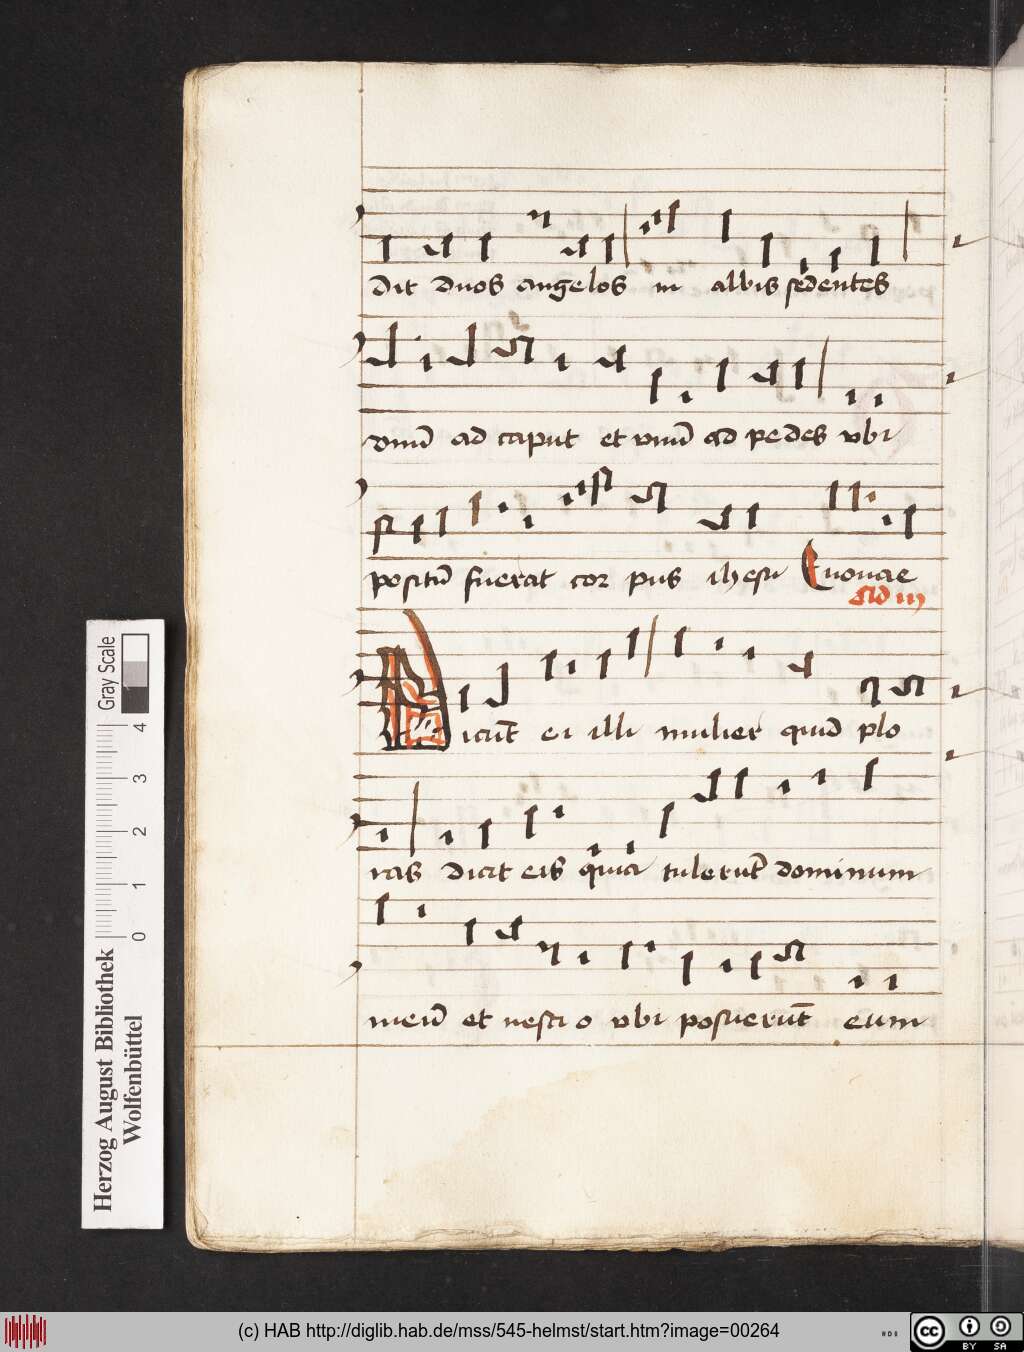 dit duos angelos in albis sedentes
vnū ad caput et vnū ad pedes vbi
positū fuerat cor pus ihesu Euouae
Ad m
Dicūt ei illi mulier quid plo
ras dicit eis quia tulerūt dominum
meū et nescio vbi posuerūt eum
Gray Scale
0 1 2 3 4
Herzog August Bibliothek
Wolfenbüttel
(c) HAB http://diglib.hab.de/mss/545-helmst/start.htm?image=00264
cc BY SA